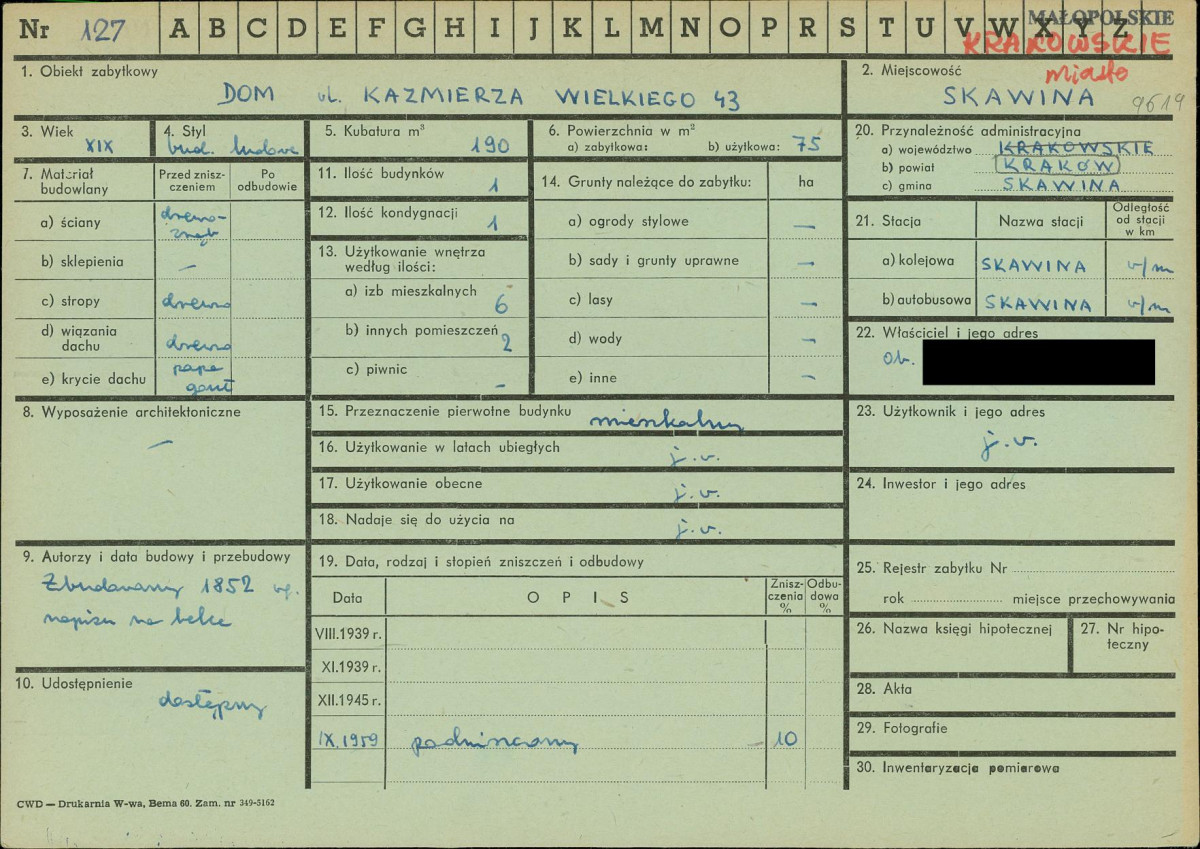 Nr 127 A B C D E F G H I J K L M N O P R S T U V W X Y Z
MAŁOPOLSKIE
KRAKOWSKIE
miasto
1. Obiekt zabytkowy
DOM ul. KAZMIERZA WIELKIEGO 43
2. Miejscowość
SKAWINA 9619
3. Wiek
XIX
4. Styl
bud. ludowe
5. Kubatura m³
190
6. Powierzchnia w m²
a) zabytkowa: b) użytkowa: 75
7. Materiał budowlany
Przed zniszczeniem
Po odbudowie
a) ściany drewno-zrąb
b) sklepienia —
c) stropy drewno
d) wiązania dachu drewno
e) krycie dachu papa gont
8. Wyposażenie architektoniczne
—
9. Autorzy i data budowy i przebudowy
Zbudowany 1852 wg.
napisu na belce
10. Udostępnienie
dostępny
11. Ilość budynków
1
12. Ilość kondygnacji
1
13. Użytkowanie wnętrza
według ilości:
a) izb mieszkalnych
6
b) innych pomieszczeń
2
c) piwnic
–
14. Grunty należące do zabytku: ha
a) ogrody stylowe —
b) sady i grunty uprawne —
c) lasy —
d) wody —
e) inne —
15. Przeznaczenie pierwotne budynku mieszkalny
16. Użytkowanie w latach ubiegłych j.w.
17. Użytkowanie obecne j.w.
18. Nadaje się do użycia na j.w.
19. Data, rodzaj i stopień zniszczeń i odbudowy
Data
OPIS
Zniszczenia %
Odbudowa %
VIII.1939 r.
XI.1939 r.
XII.1945 r.
IX.1959 podniszczony — 10
20. Przynależność administracyjna
a) województwo KRAKOWSKIE
b) powiat KRAKÓW
c) gmina SKAWINA
21. Stacja
Nazwa stacji
Odległość od stacji w km
a) kolejowa SKAWINA w/m
b) autobusowa SKAWINA w/m
22. Właściciel i jego adres
Ob.
23. Użytkownik i jego adres
j.w.
24. Inwestor i jego adres
25. Rejestr zabytku Nr
rok miejsce przechowywania
26. Nazwa księgi hipotecznej
27. Nr hipoteczny
28. Akta
29. Fotografie
30. Inwentaryzacja pomiarowa
CWD — Drukarnia W-wa, Bema 60. Zam. nr 349-5162